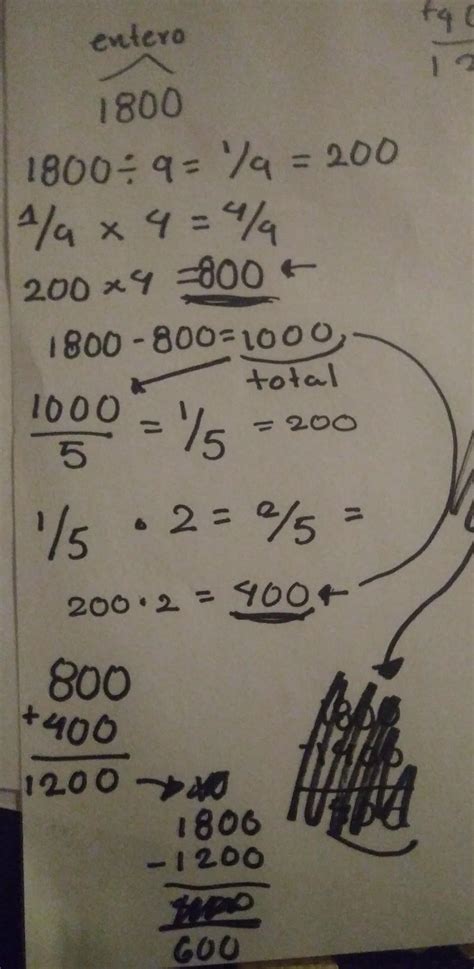 entero
1800
1800 ÷ 9 = 1/9 = 200
1/9 × 4 = 4/9
200 × 4 = 800 ←
1800 - 800 = 1000
total
1000/5 = 1/5 = 200
1/5 · 2 = 2/5 =
200 · 2 = 400 ←
800
+400
1200 →
1800
-1200
600